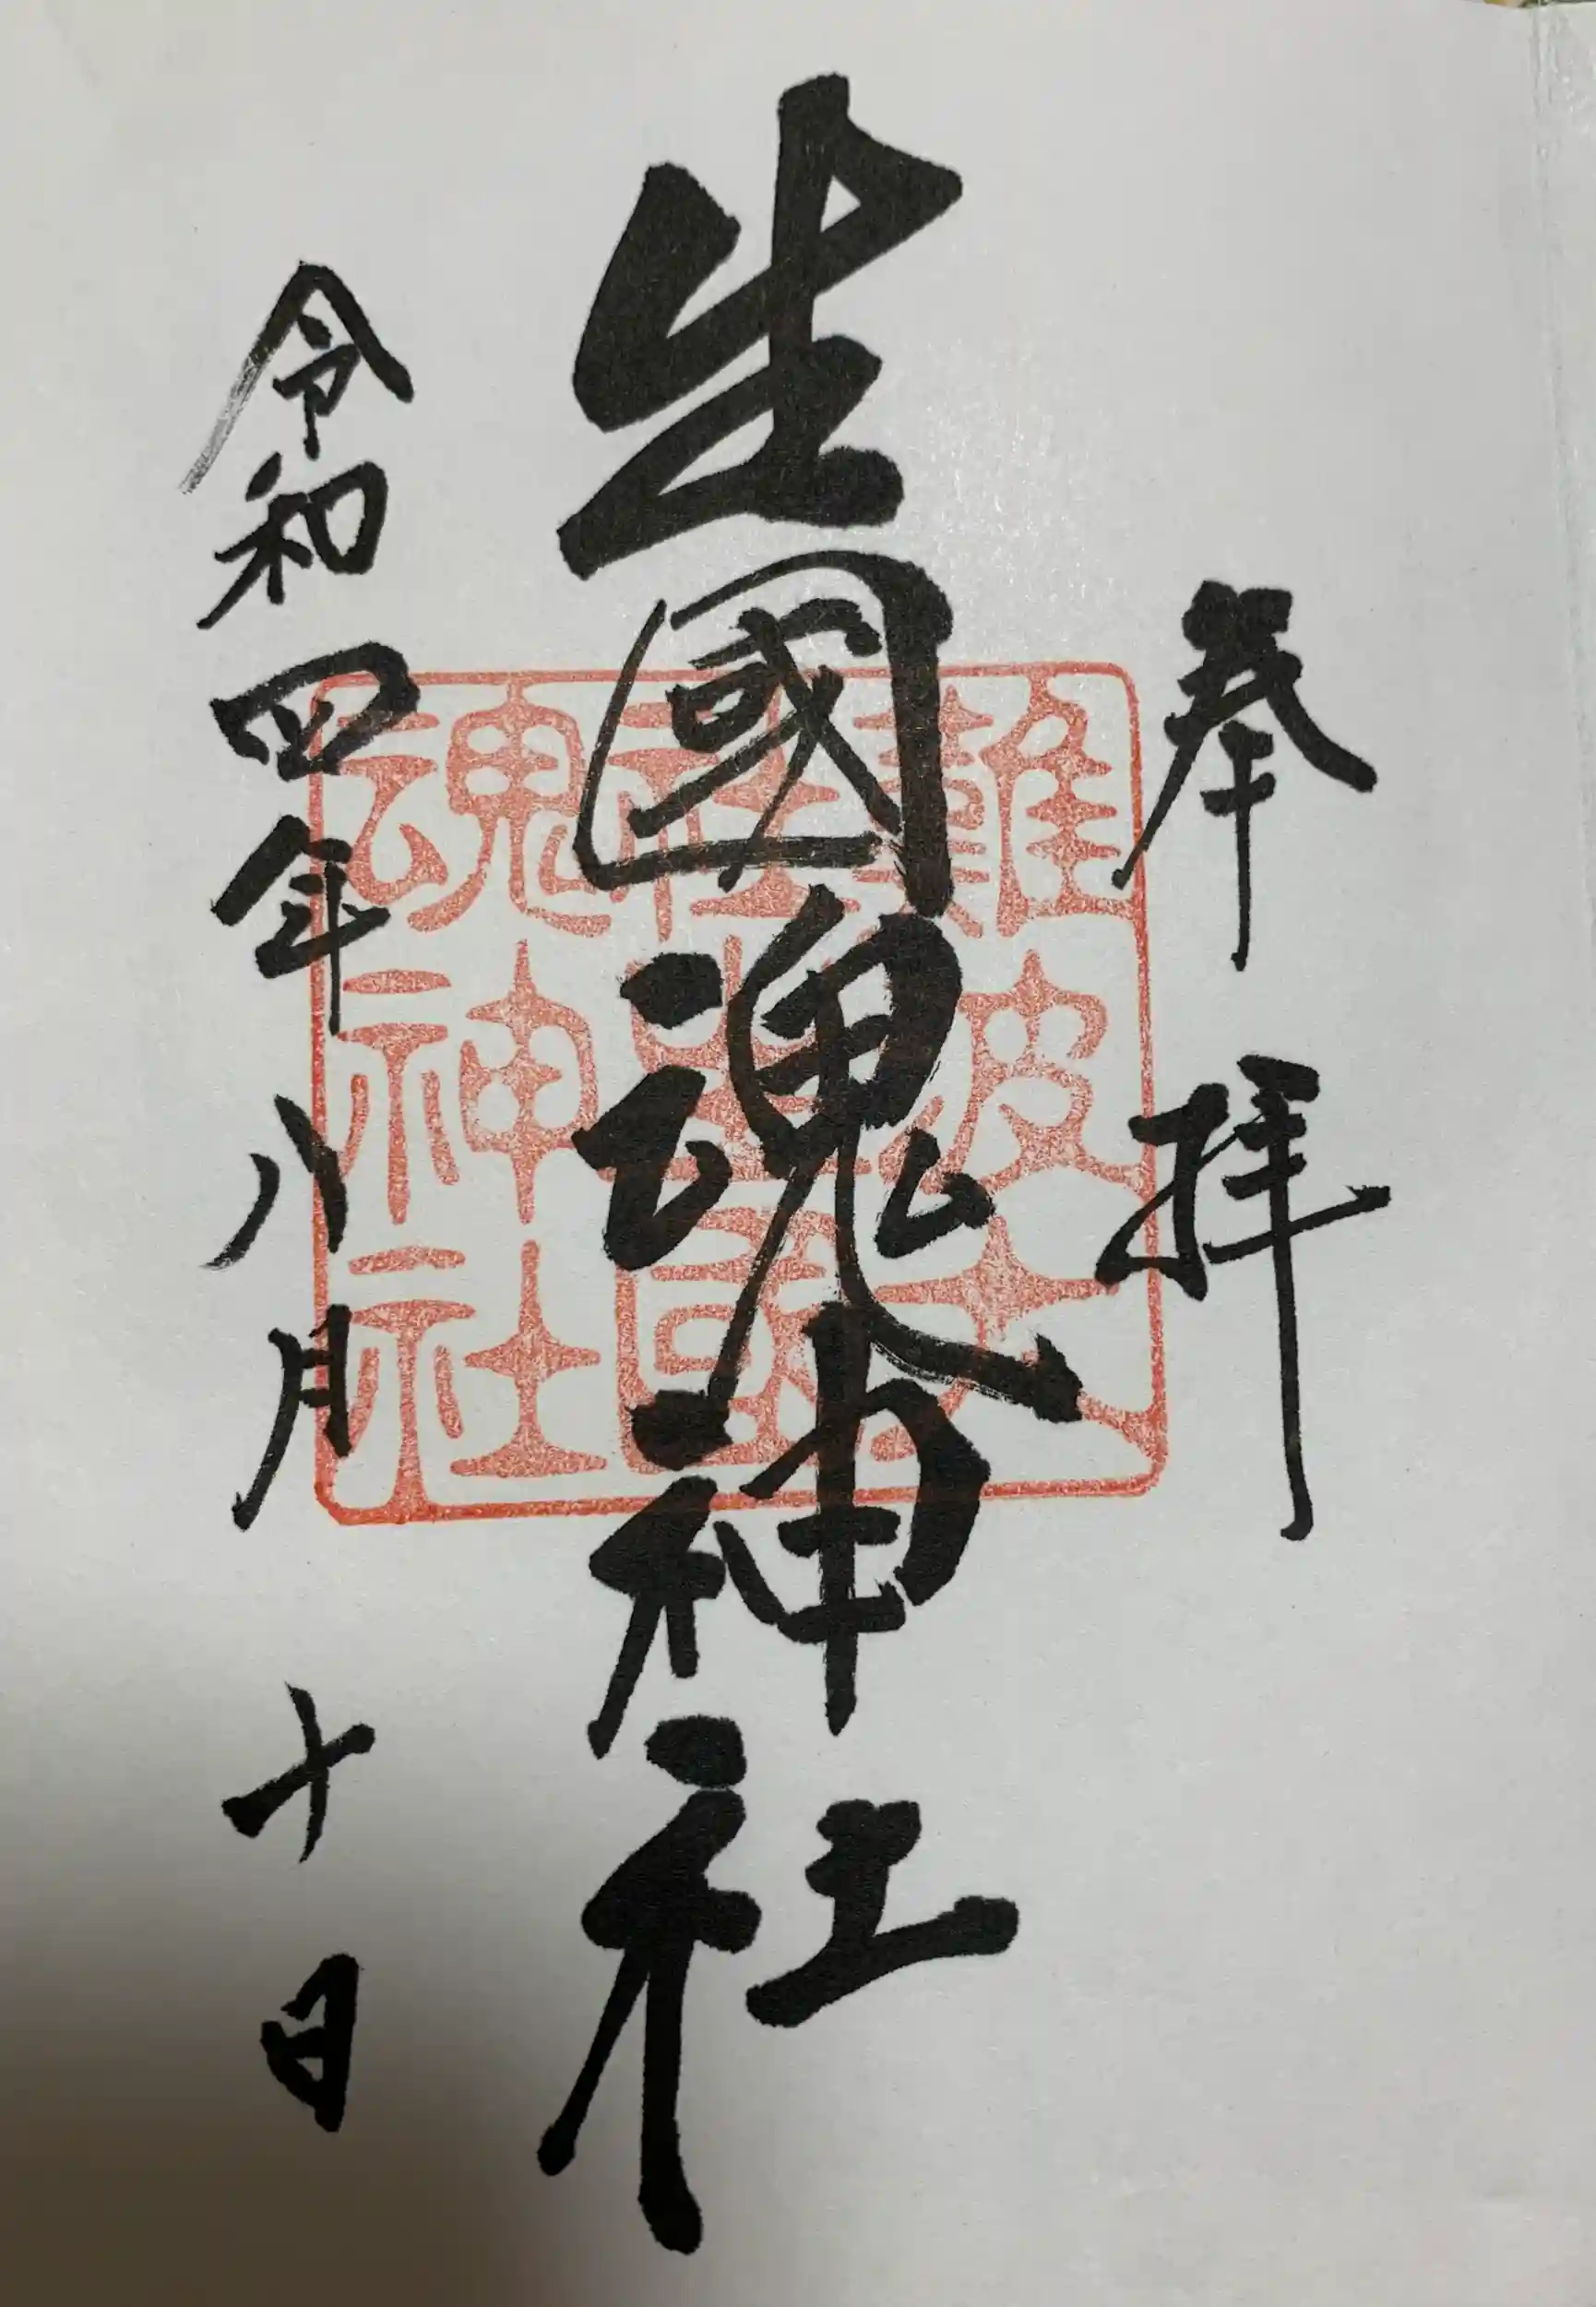 奉拝
生國魂神社
令和四年八月十日
難波大社生國魂神社